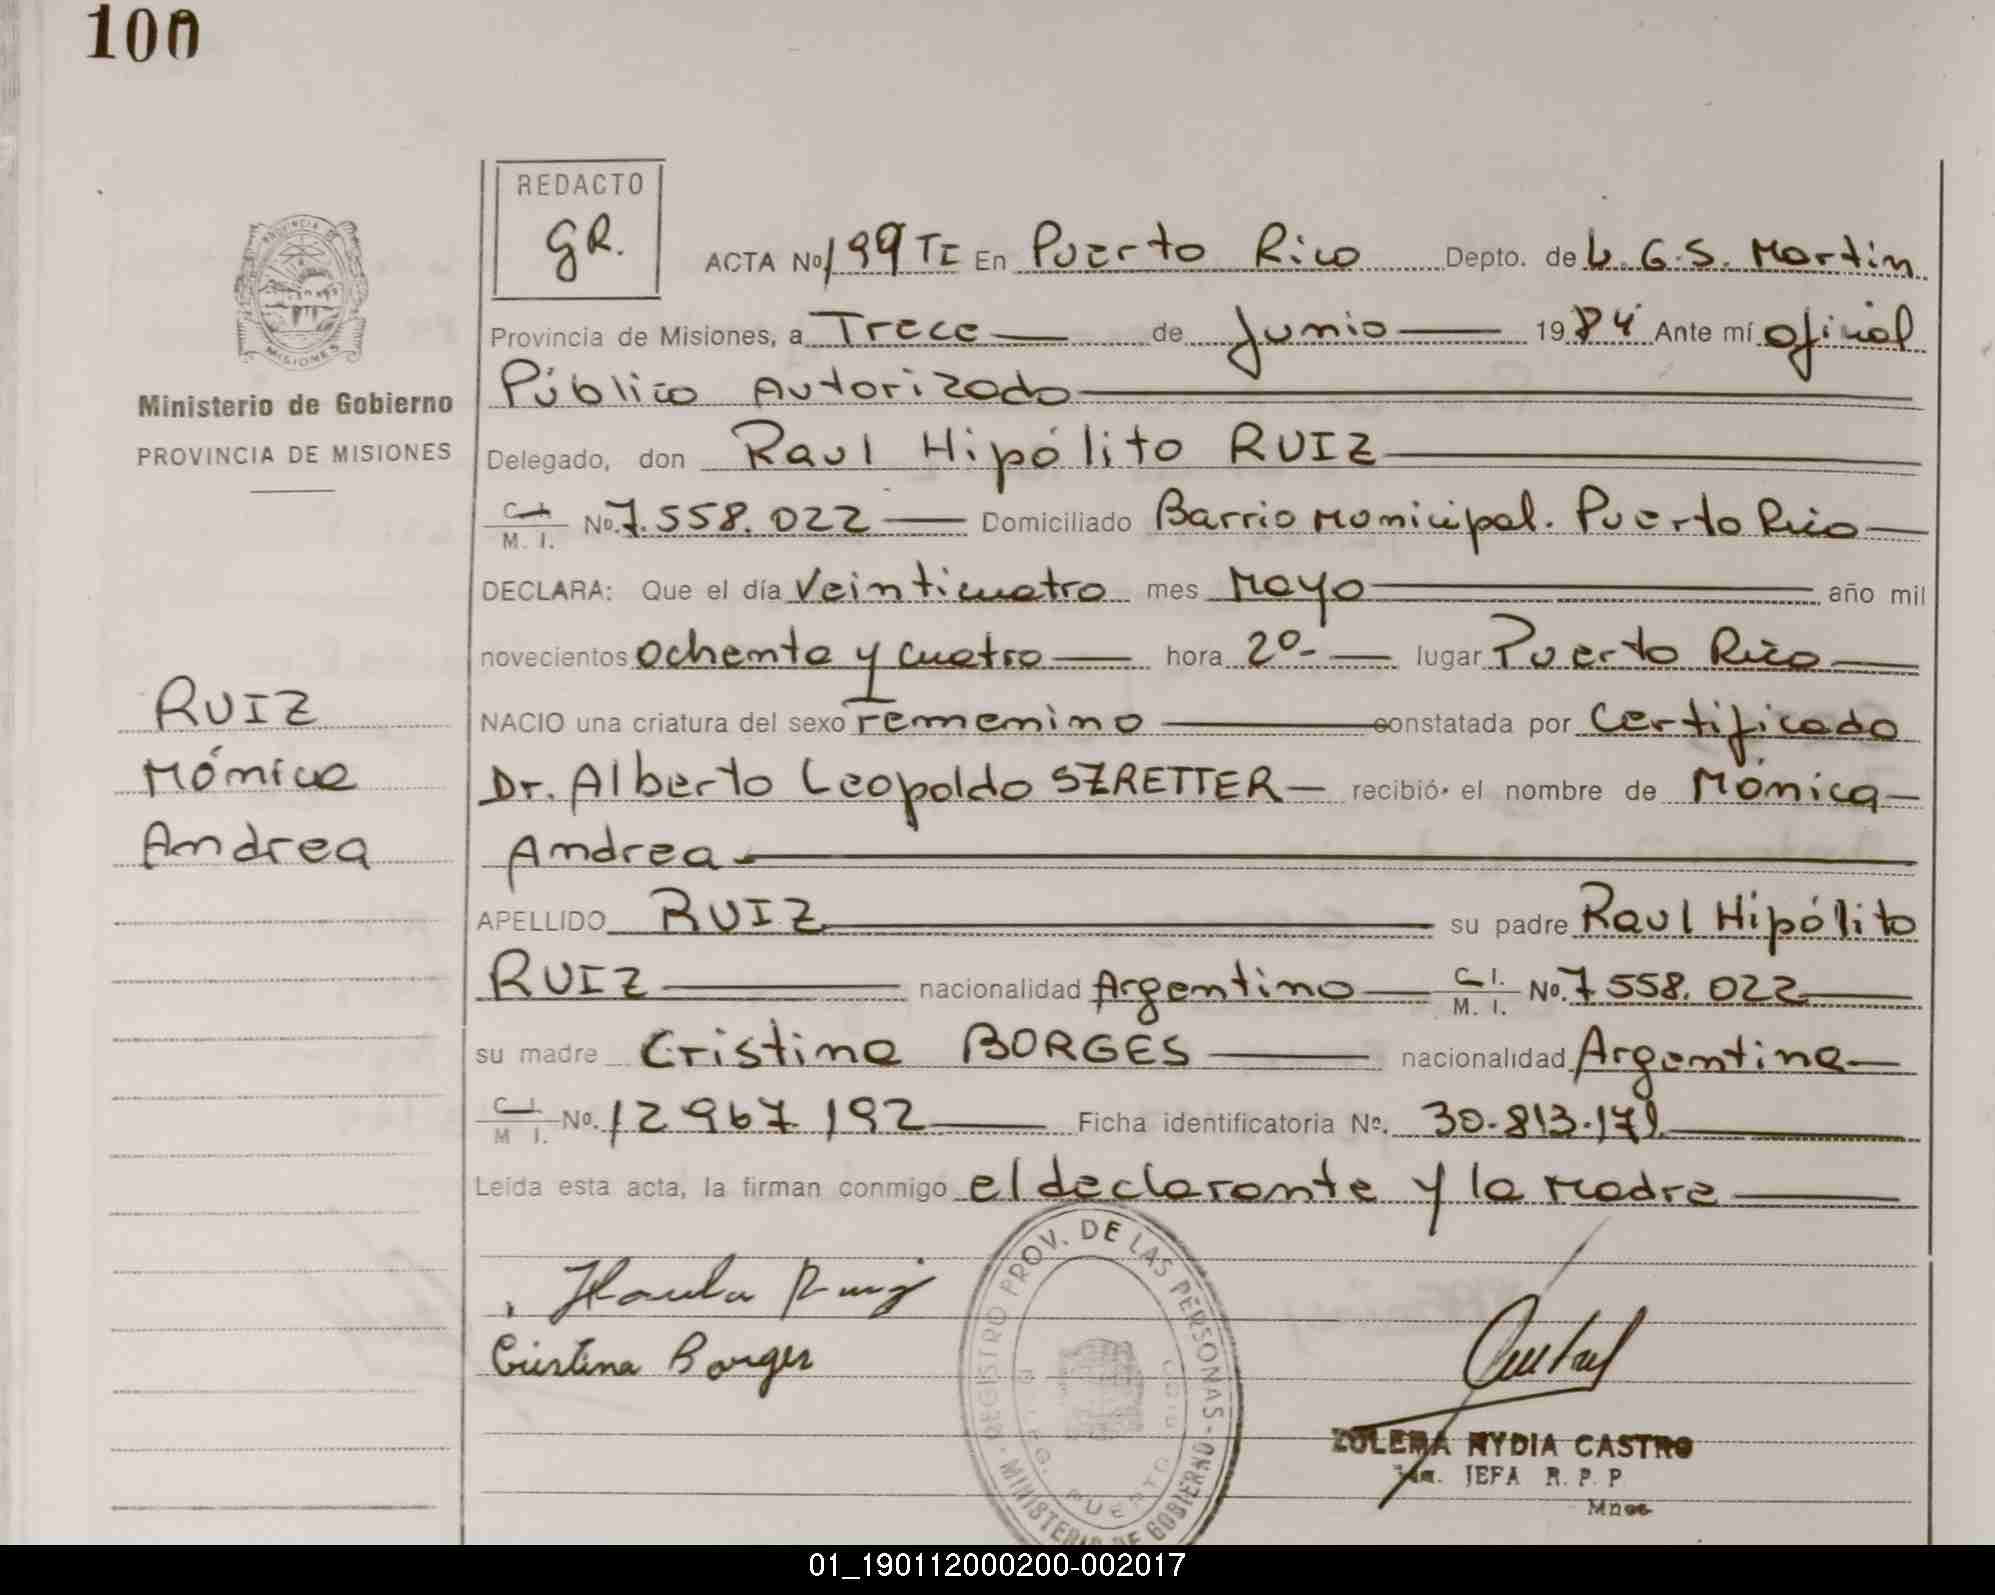 100
REDACTO
GR.
ACTA No 199 TI En Puerto Rico Depto. de L. G. S. Martin
Provincia de Misiones, a Trece de Junio 1984 Ante mí oficial
Público Autorizado
Delegado, don Raul Hipólito RUIZ
C. I.
M. I. No. 7.558.022 Domiciliado Barrio Municipal. Puerto Rico
DECLARA: Que el día Veinticuatro mes Mayo año mil
novecientos ochenta y cuatro hora 2º- lugar Puerto Rico
NACIO una criatura del sexo Femenino constatada por Certificado
Dr. Alberto Leopoldo SZRETTER recibió el nombre de Mónica
Andrea
APELLIDO RUIZ su padre Raul Hipólito
RUIZ nacionalidad Argentino C. I.
M. I. No. 7 558. 022
su madre Cristina BORGES nacionalidad Argentina
C. I.
M. I. No. 12 967 192 Ficha identificatoria Nº. 30.813.171
Leída esta acta, la firman conmigo el declarante y la Madre
PROVINCIA DE
MISIONES
Ministerio de Gobierno
PROVINCIA DE MISIONES
RUIZ
Mónica
Andrea
Ruiz
Cristina Borges
REGISTRO PROV. DE LAS PERSONAS
MINISTERIO DE GOBIERNO
PUERTO
ZULEMA NYDIA CASTRO
JEFA R. P. P
Mnes
01_190112000200-002017